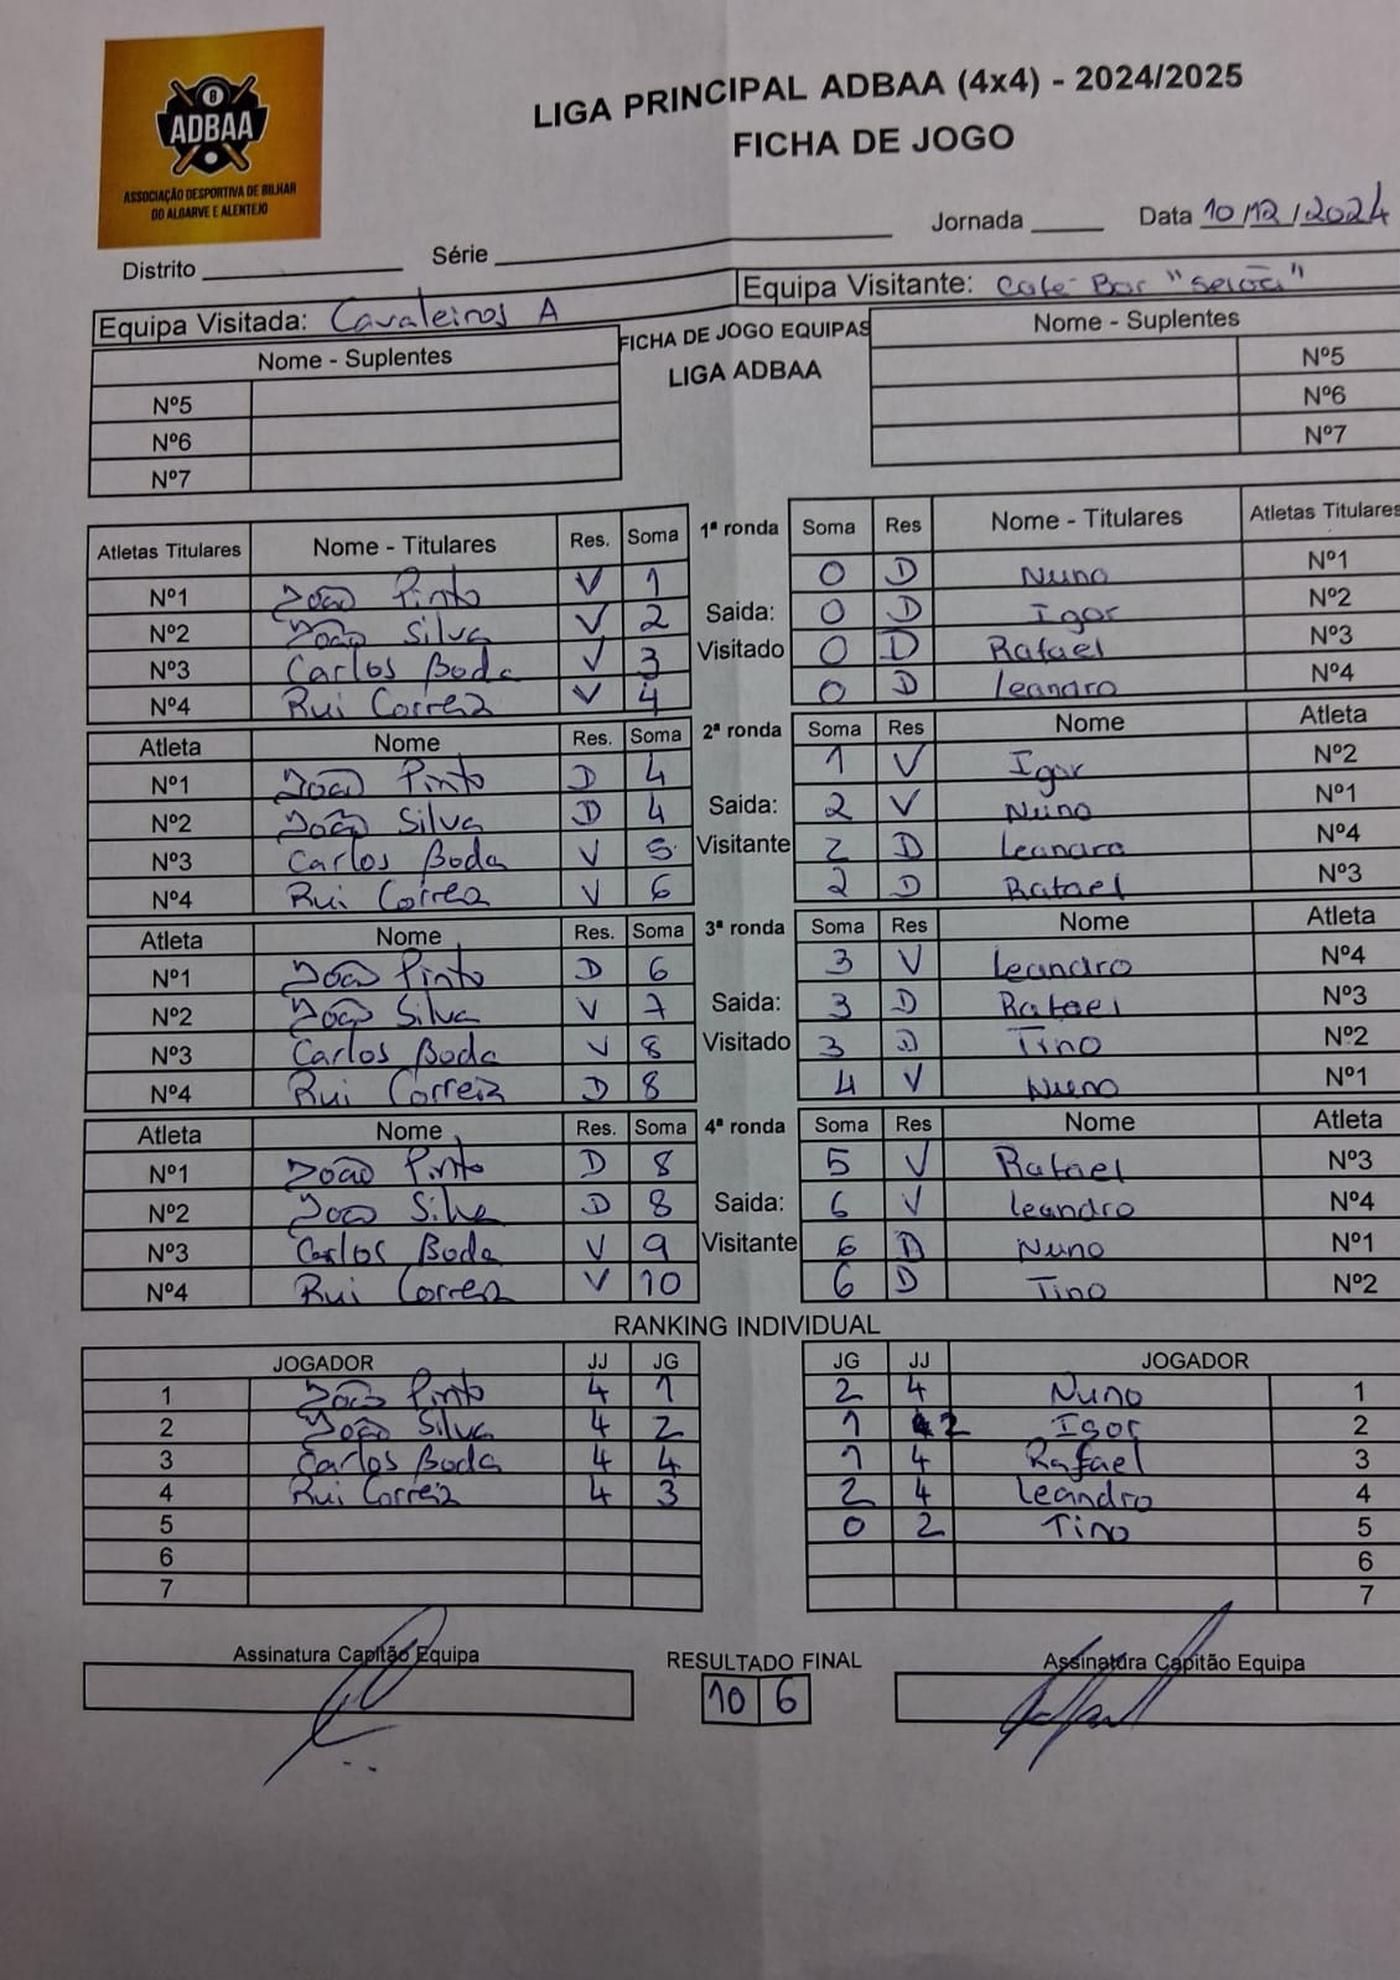 8
ADBAA
ASSOCIAÇÃO DESPORTIVA DE BILHAR
DO ALGARVE E ALENTEJO
LIGA PRINCIPAL ADBAA (4x4) - 2024/2025
FICHA DE JOGO
Distrito Série Jornada Data 10/12/2024
Equipa Visitada: Cavaleiros A Equipa Visitante: Café Bar
Nome - Suplentes FICHA DE JOGO EQUIPAS Nome - Suplentes
LIGA ADBAA
Nº5 Nº5
Nº6 Nº6
Nº7 Nº7
Atletas Titulares Nome - Titulares Res. Soma 1ª ronda Soma Res Nome - Titulares Atletas Titulares
Nº1 João Pinto V 1 0 D Nuno Nº1
Nº2 João Silva V 2 Saida: 0 D Igor Nº2
Nº3 Carlos Boda V 3 Visitado 0 D Rafael Nº3
Nº4 Rui Correia V 4 0 D Leandro Nº4
Atleta Nome Res. Soma 2ª ronda Soma Res Nome Atleta
Nº1 João Pinto D 4 1 V Igor Nº2
Nº2 João Silva D 4 Saida: 2 V Nuno Nº1
Nº3 Carlos Boda V 5 Visitante 2 D Leandro Nº4
Nº4 Rui Correia V 6 2 D Rafael Nº3
Atleta Nome Res. Soma 3ª ronda Soma Res Nome Atleta
Nº1 João Pinto D 6 3 V Leandro Nº4
Nº2 João Silva V 7 Saida: 3 D Rafael Nº3
Nº3 Carlos Boda V 8 Visitado 3 D Tino Nº2
Nº4 Rui Correia D 8 4 V Nuno Nº1
Atleta Nome Res. Soma 4ª ronda Soma Res Nome Atleta
Nº1 João Pinto D 8 5 V Rafael Nº3
Nº2 João Silva D 8 Saida: 6 V Leandro Nº4
Nº3 Carlos Boda V 9 Visitante 6 D Nuno Nº1
Nº4 Rui Correia V 10 6 D Tino Nº2
RANKING INDIVIDUAL
JOGADOR JJ JG JG JJ JOGADOR
1 João Pinto 4 1 2 4 Nuno 1
2 João Silva 4 2 1 2 Igor 2
3 Carlos Boda 4 4 1 4 Rafael 3
4 Rui Correia 4 3 2 4 Leandro 4
5 0 2 Tino 5
6 6
7 7
Assinatura Capitão Equipa RESULTADO FINAL Assinatura Capitão Equipa
10 6